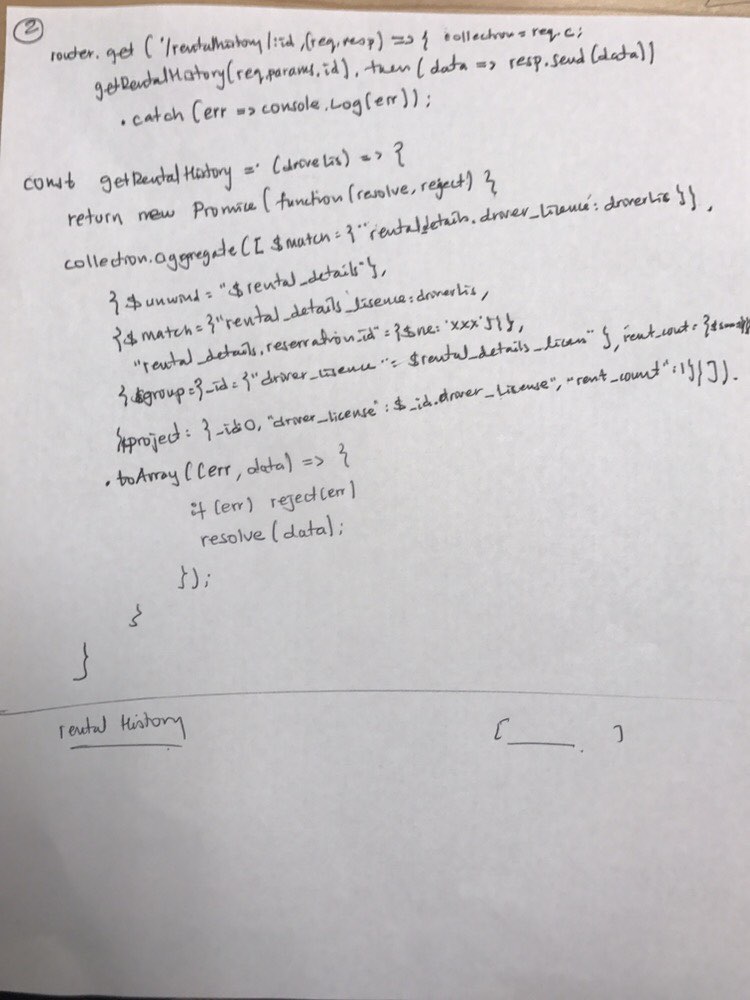 2
router.get ('/rentalhistory/:id, (req, resp) => { collection = req.c;
getRentalHistory(req.params.id).then( data => resp.send(data))
.catch (err => console.log(err));
const getRentalHistory = (driveLis) => {
return new Promice ( function (resolve, reject) {
collection.aggregate ([ $match = {"rental_details.driver_lisence: driverLis }},
{ $unwind = "$rental_details"},
{$ match = {"rental_details lisence: driverLis,
"rental_details.reservation_id" = {$ne: 'xxx'}}},
{ $group = {_id = {"driver_lisence" = $rental_details_licen" }, rent_count = {
{$project : {_id: 0, "driver_license" : $_id.driver_License", "rent_count" : 1}} ]).
.toArray ((err, data) => {
if (err) reject(err)
resolve (data);
});
}
}
rental History [ ______ . ]